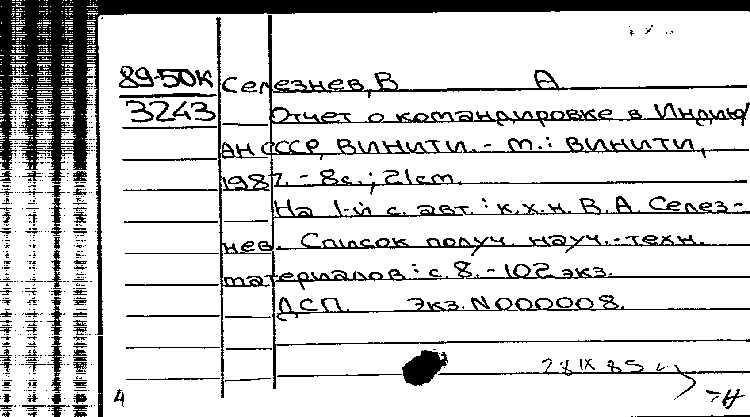 89-50к Селезнев, В А
3243 Отчет о командировке в Индию/
АН СССР, ВИНИТИ. - М.: ВИНИТИ,
1987. - 8с.; 21см.
На 1-й с. авт.: к.х.н. В.А. Селез-
нев. Список получ. науч.-техн.
материалов: с 8. - 102 экз.
ДСП. Экз. N000008.
28 IX 85
4